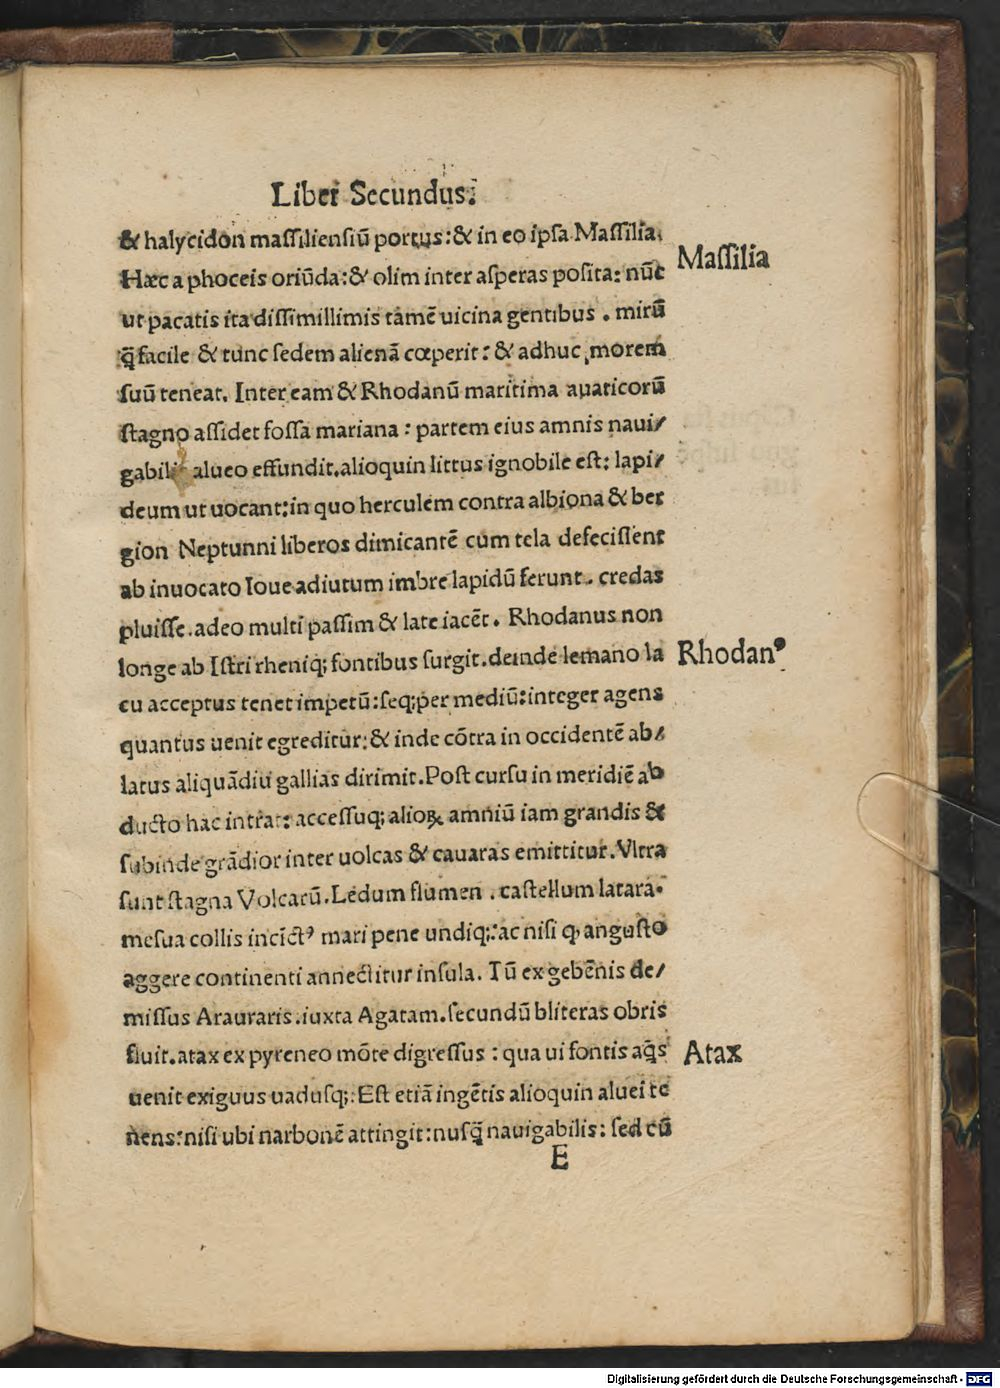 Liber Secundus.
& halycidon maſſilienſiū portus: & in eo ipſa Maſſilia.
Hæc a phoceis oriūda: & olim inter aſperas poſita: nūc
ut pacatis ita diſſimillimis tamē uicina gentibus . mirū
q̄ facile & tunc ſedem alienā cœperit: & adhuc morem
ſuū teneat. Inter eam & Rhodanū maritima auaticorū
ſtagno aſſidet foſſa mariana : partem eius amnis naui/
gabili alueo effundit. alioquin littus ignobile eſt: lapi/
deum ut uocant: in quo herculem contra albiona & ber
gion Neptunni liberos dimicantē cum tela defeciſſent
ab inuocato Ioue adiutum imbre lapidū ferunt . credas
pluiſſe. adeo multi paſſim & late iacēt . Rhodanus non
longe ab Iſtri rheniq; fontibus ſurgit. deinde lemano la
cu acceptus tenet impetū: ſeq; per mediū: integer agens
quantus uenit egreditur: & inde cōtra in occidentē ab/
latus aliquādiu gallias dirimit. Poſt curſu in meridiē ab
ducto hac intrat: acceſſuq; alioꝝ amniū iam grandis &
ſubinde grādior inter uolcas & cauaras emittitur. Vltra
ſunt ſtagna Volcarū. Ledum flumen . caſtellum latara.
meſua collis incīctꝰ mari pene undiq;: ac niſi ꝙ anguſto
aggere continenti annectitur inſula. Tū ex gebēnis de/
miſſus Arauraris. iuxta Agatam. ſecundū bliteras obris
fluit. atax ex pyreneo mōte digreſſus : qua ui fontis aq̄s
uenit exiguus uaduſq;: Eſt etiā ingētis alioquin aluei te
nens: niſi ubi narbonē attingit: nuſq̄ nauigabilis: ſed cū
E
Maſſilia
Rhodanꝰ
Atax
Digitalisierung gefördert durch die Deutsche Forschungsgemeinschaft - DFG